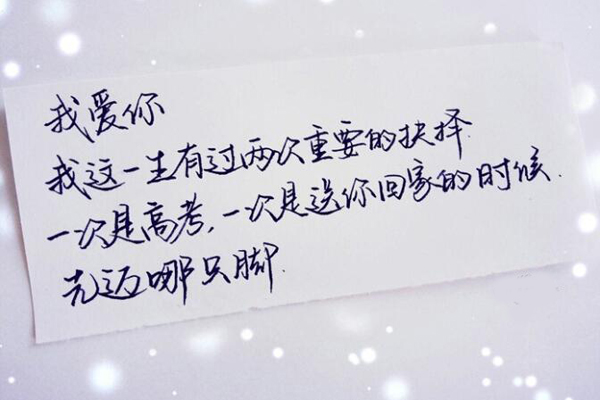 我爱你
我这一生有过两次重要的抉择.
一次是高考,一次是送你回家的时候.
先迈哪只脚.